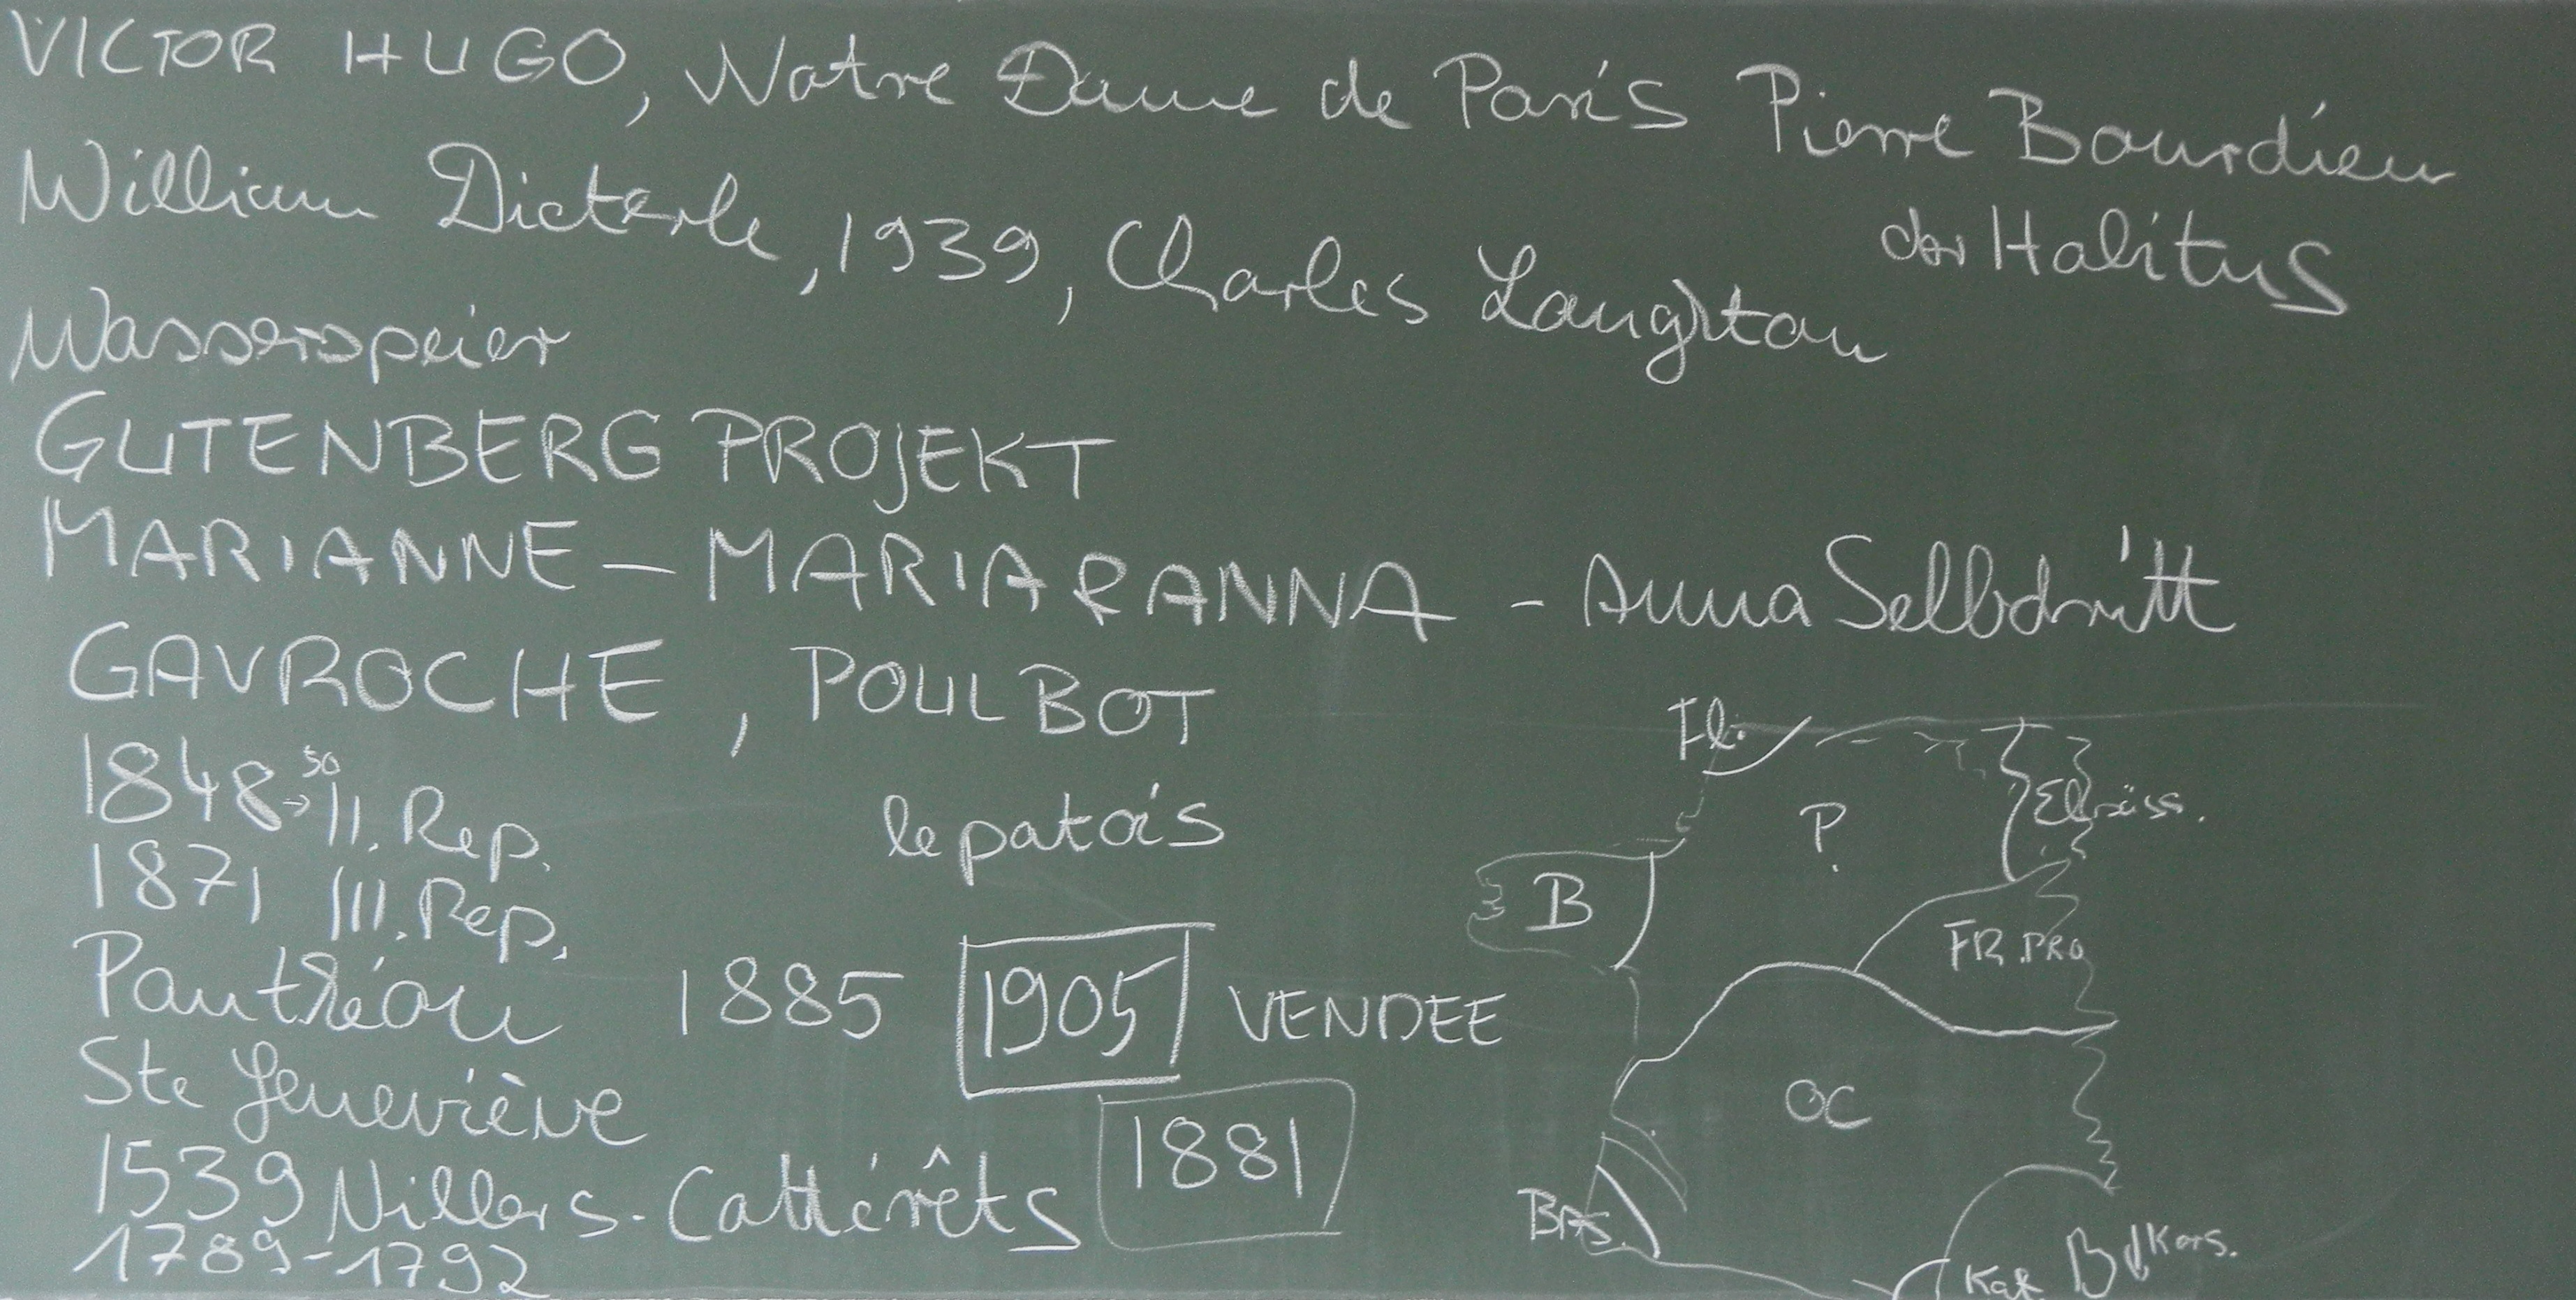 VICTOR HUGO, Notre Dame de Paris
Pierre Bourdieu
der Habitus
William Dieterle, 1939, Charles Laughton
Wasserspeier
GUTENBERG PROJEKT
MARIANNE – MARIA & ANNA - Anna Selbdritt
GAVROCHE, POULBOT
1848 → II. Rep.
50
le patois
1871 III. Rep.
Panthéon 1885 1905 VENDEE
Ste Geneviève
1539 Villers-Cottérêts 1881
1789-1792
Fl.
P.
Elsäss.
B
FR.PRO
OC
BAS.
Kat
Kors.